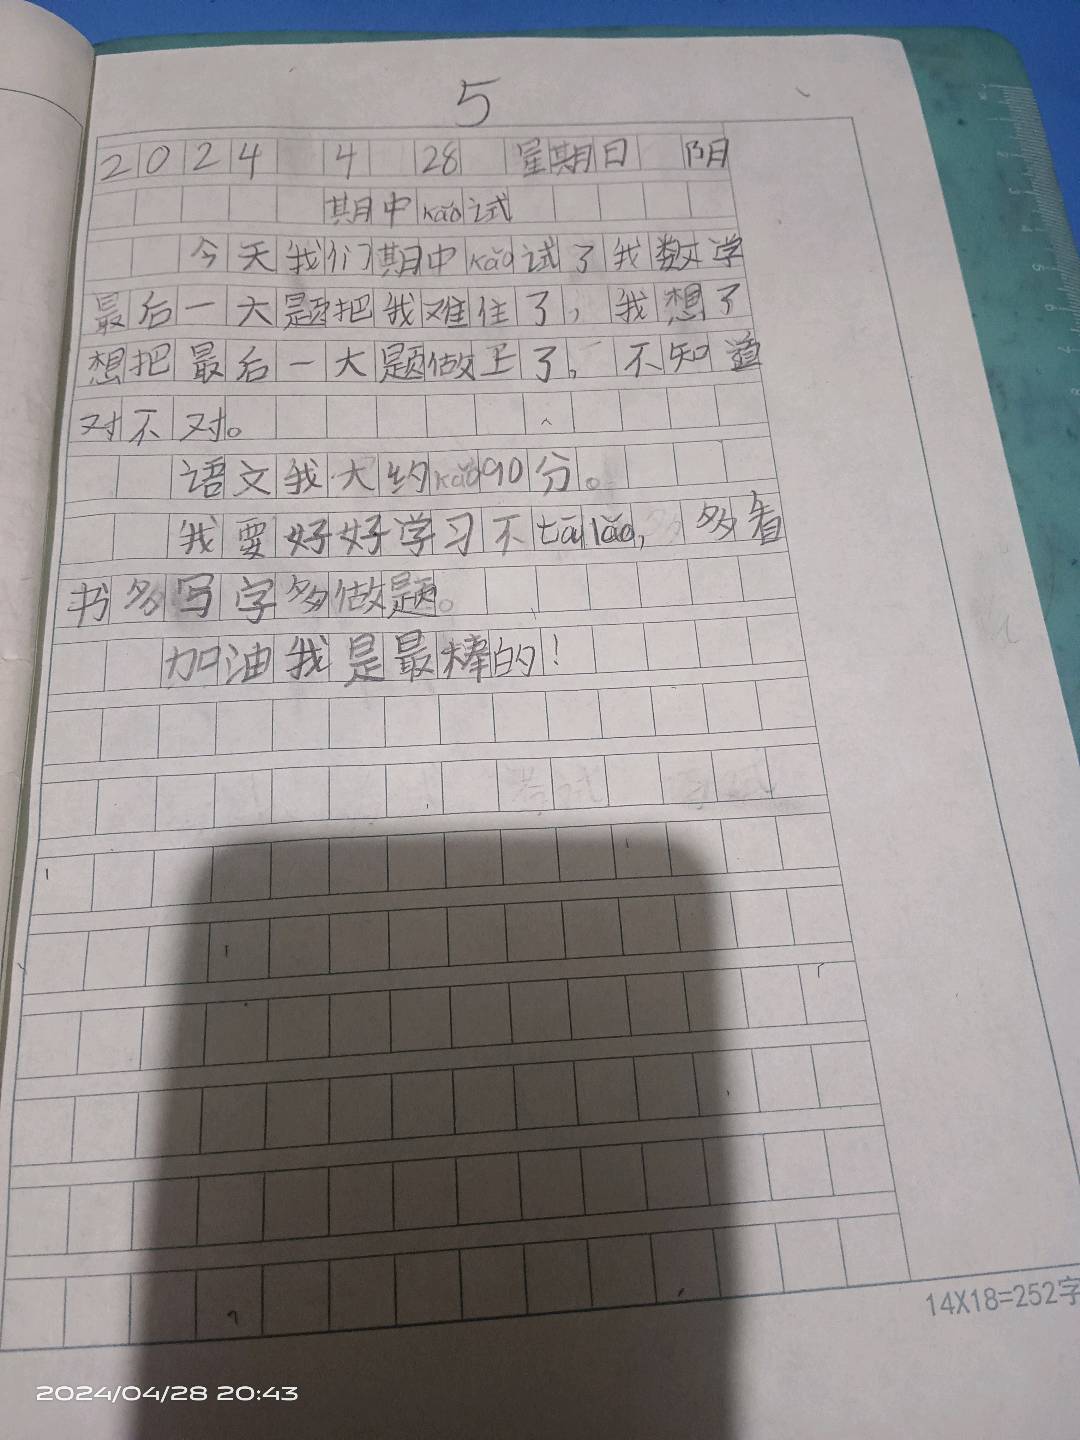 5
2024 4 28 星期日 阴
期中kǎo试
今天我们期中kǎo试了我数学
最后一大题把我难住了，我想了
想把最后一大题做上了。不知道
对不对。
语文我大约kǎo90分。
我要好好学习不tān lǎn，多看
书多写字多做题。
加油我是最棒的！
14X18=252字
2024/04/28 20:43